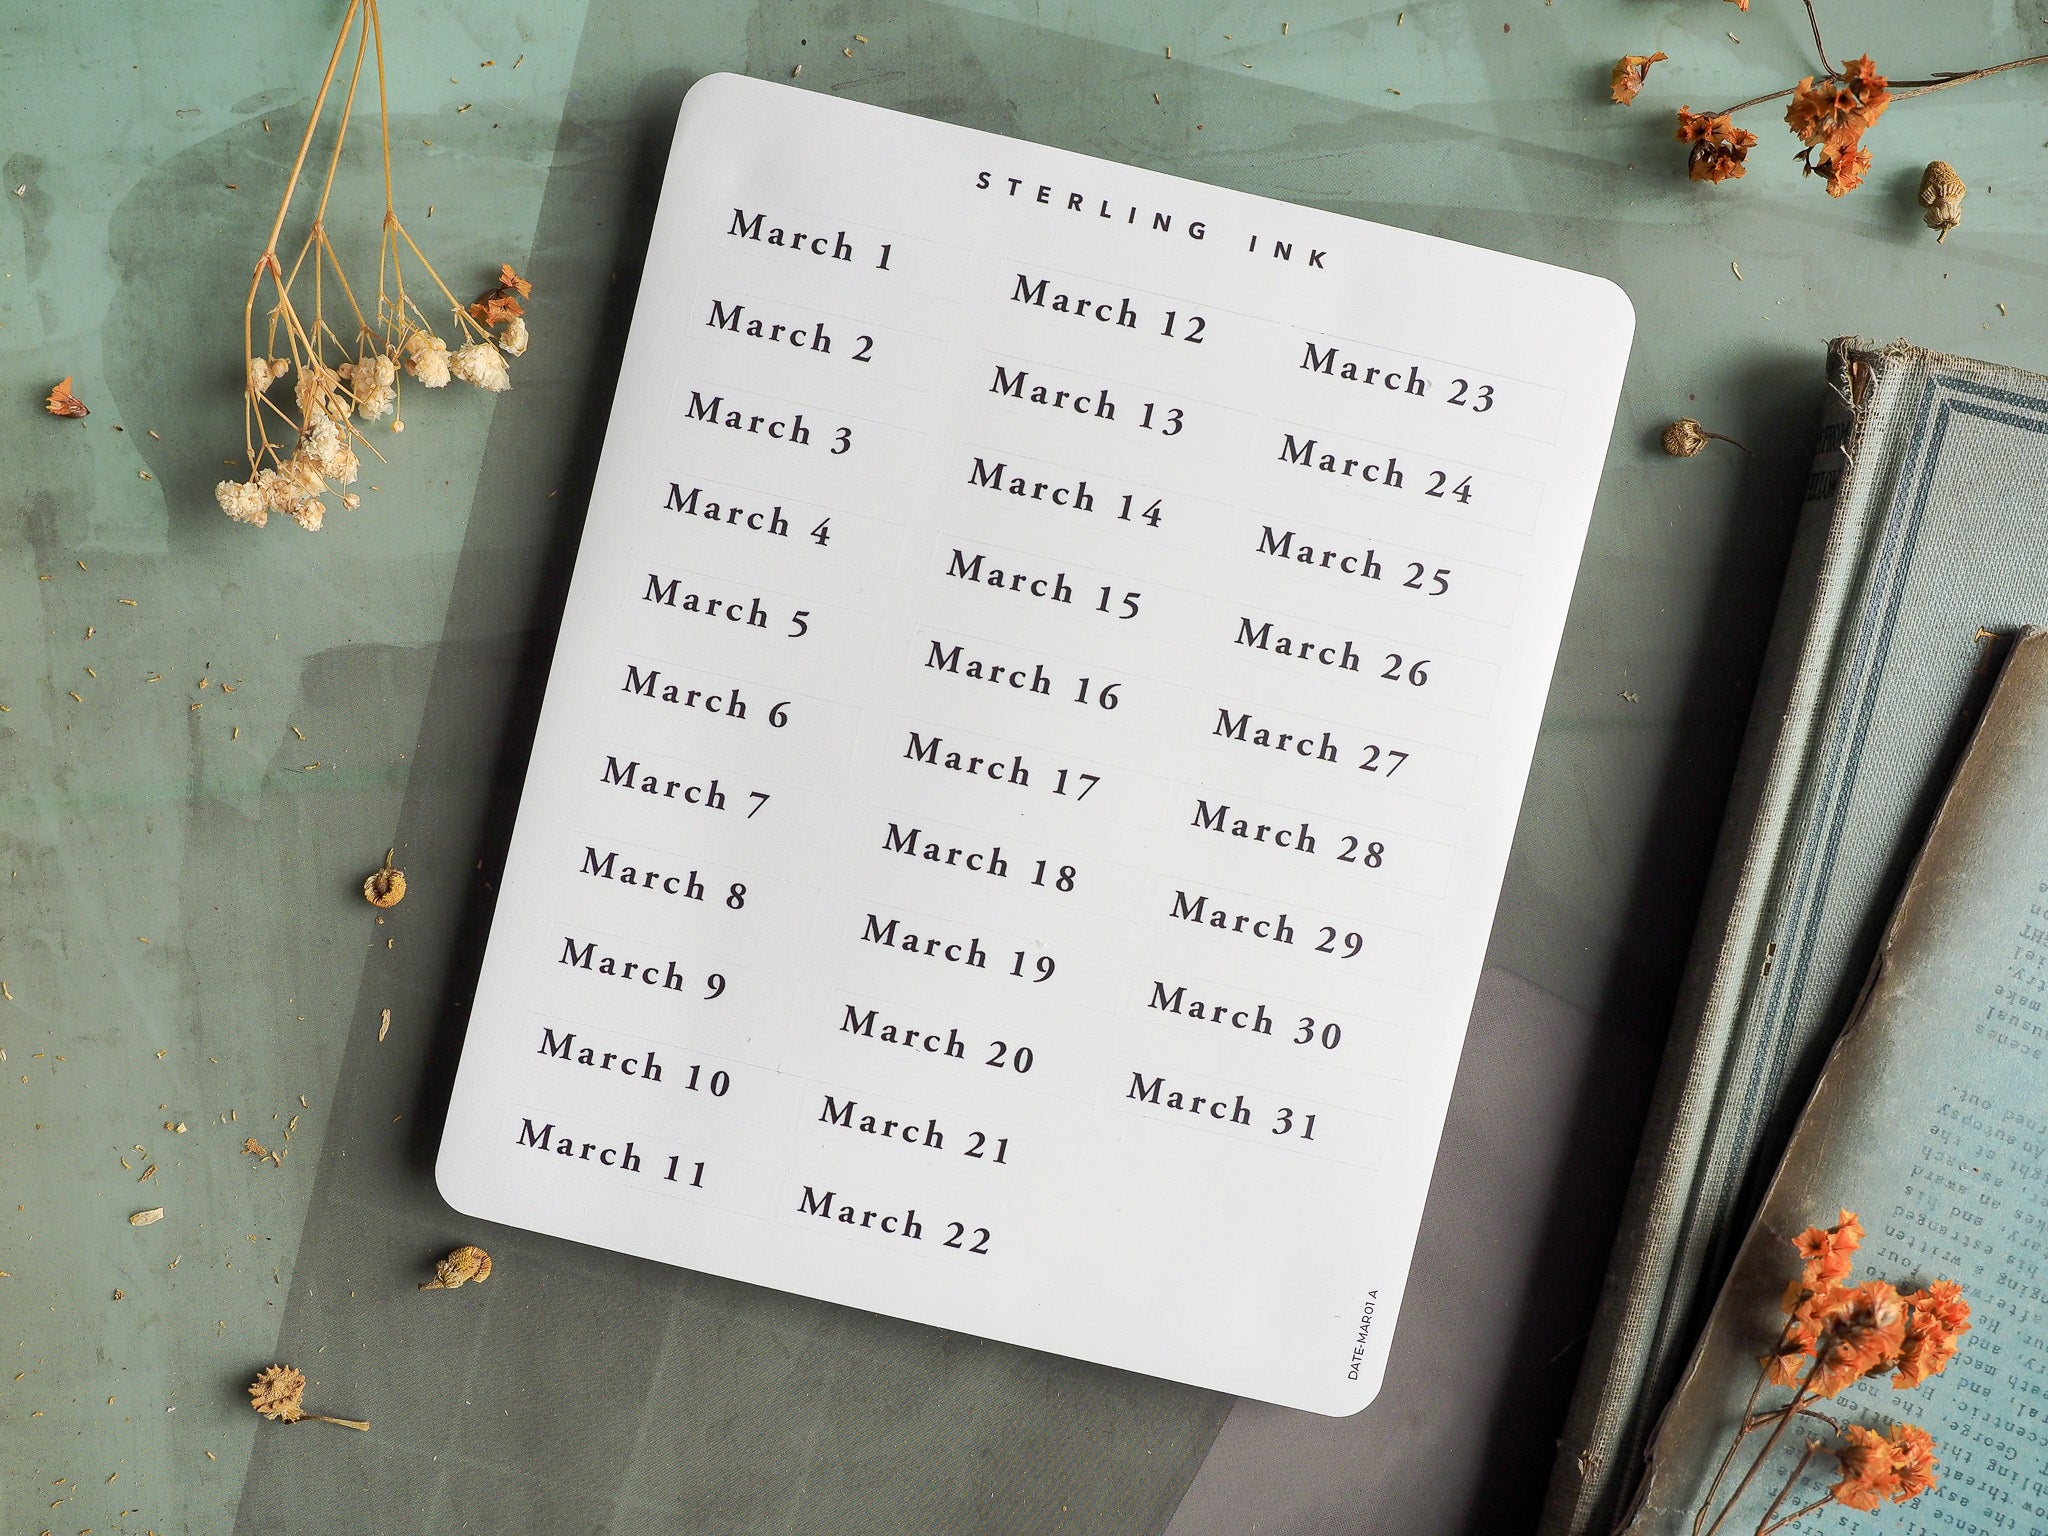 STERLING INK
March 1
March 2
March 3
March 4
March 5
March 6
March 7
March 8
March 9
March 10
March 11
March 12
March 13
March 14
March 15
March 16
March 17
March 18
March 19
March 20
March 21
March 22
March 23
March 24
March 25
March 26
March 27
March 28
March 29
March 30
March 31
DATE-MAR01 A